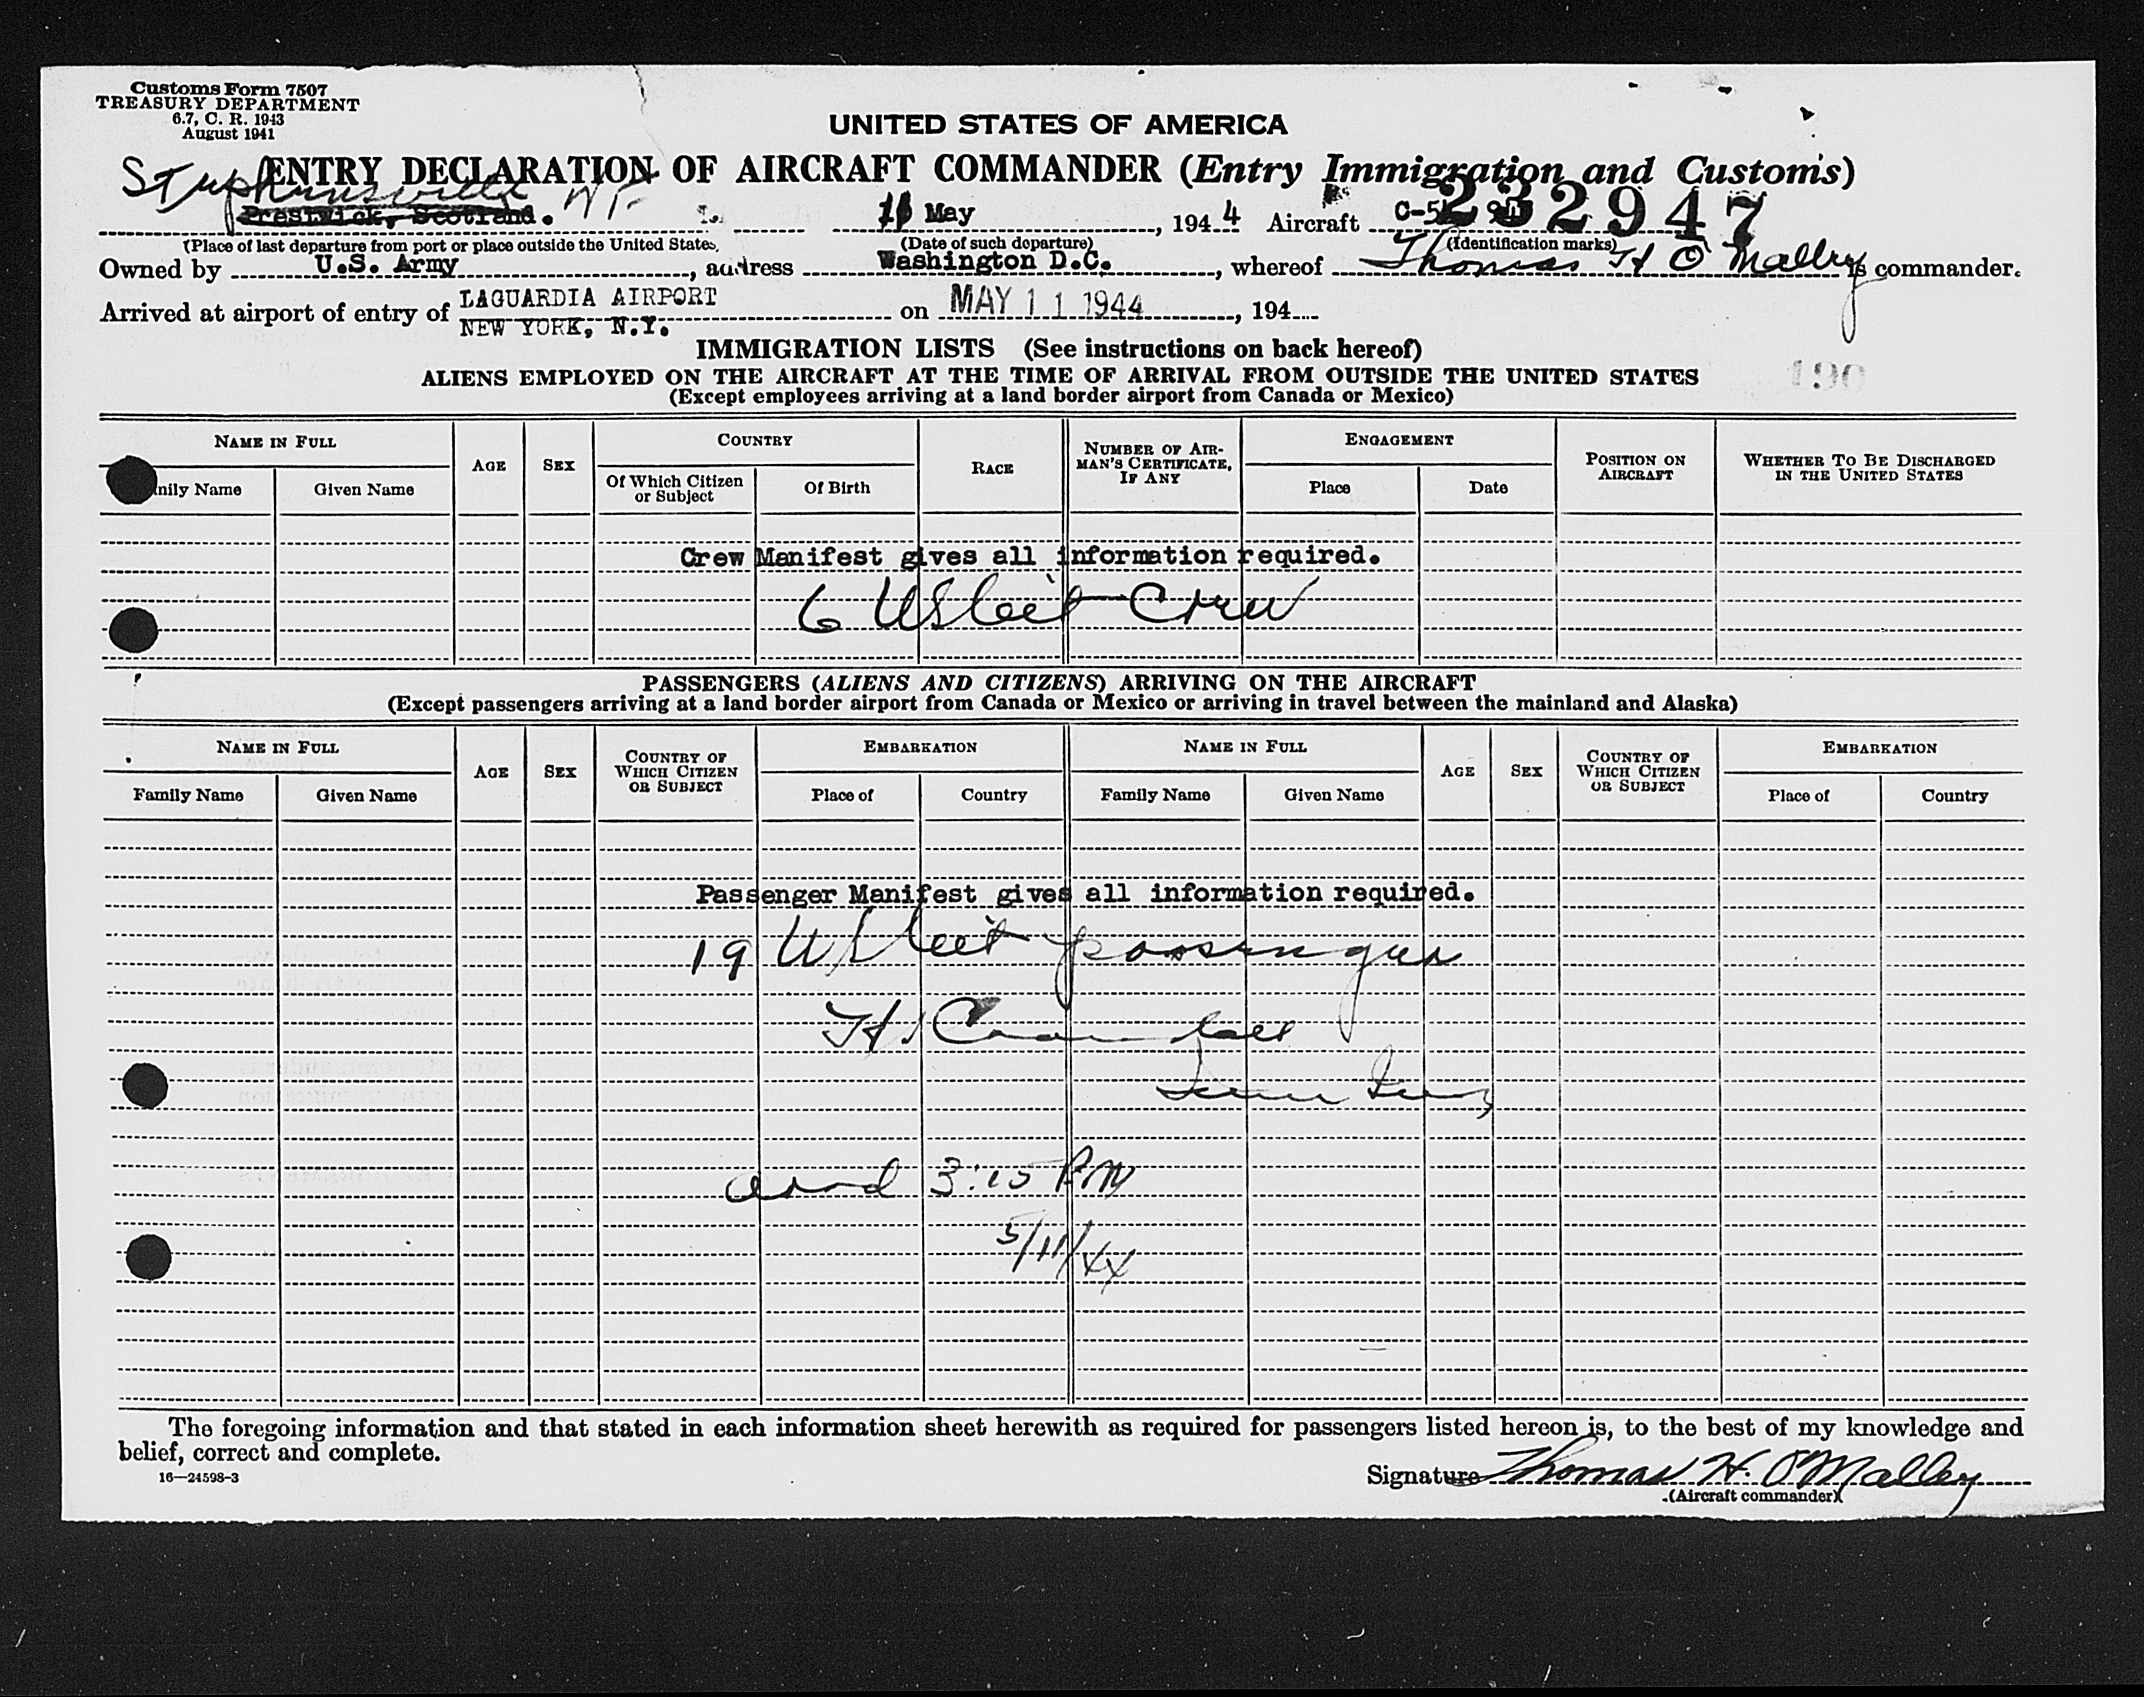 Customs Form 7507
TREASURY DEPARTMENT
6.7, C. R. 1943
August 1941
UNITED STATES OF AMERICA
ENTRY DECLARATION OF AIRCRAFT COMMANDER (Entry Immigration and Customs)
Stephensville NF
Prestwick, Scotland. 11 May, 1944 Aircraft C-54 232947
(Place of last departure from port or place outside the United States) (Date of such departure) (Identification marks)
Owned by U.S. Army, address Washington D.C., whereof Thomas H O'Malley is commander.
Arrived at airport of entry of LAGUARDIA AIRPORT on MAY 11 1944, 194
NEW YORK, N.Y.
IMMIGRATION LISTS (See instructions on back hereof)
ALIENS EMPLOYED ON THE AIRCRAFT AT THE TIME OF ARRIVAL FROM OUTSIDE THE UNITED STATES 190
(Except employees arriving at a land border airport from Canada or Mexico)
NAME IN FULL AGE SEX COUNTRY RACE NUMBER OF AIRMAN'S CERTIFICATE, IF ANY ENGAGEMENT POSITION ON AIRCRAFT WHETHER TO BE DISCHARGED IN THE UNITED STATES
mily Name Given Name Of Which Citizen or Subject Of Birth Place Date
Crew Manifest gives all information required.
6 US Cit Crew
PASSENGERS (ALIENS AND CITIZENS) ARRIVING ON THE AIRCRAFT
(Except passengers arriving at a land border airport from Canada or Mexico or arriving in travel between the mainland and Alaska)
NAME IN FULL AGE SEX COUNTRY OF WHICH CITIZEN OR SUBJECT EMBARKATION NAME IN FULL AGE SEX COUNTRY OF WHICH CITIZEN OR SUBJECT EMBARKATION
Family Name Given Name Place of Country Family Name Given Name Place of Country
Passenger Manifest gives all information required.
19 US Cit passengers
arrd 3:15 PM
5/11/44
The foregoing information and that stated in each information sheet herewith as required for passengers listed hereon is, to the best of my knowledge and
belief, correct and complete.
16—24598-3
Signature Thomas H. O'Malley
(Aircraft commander)